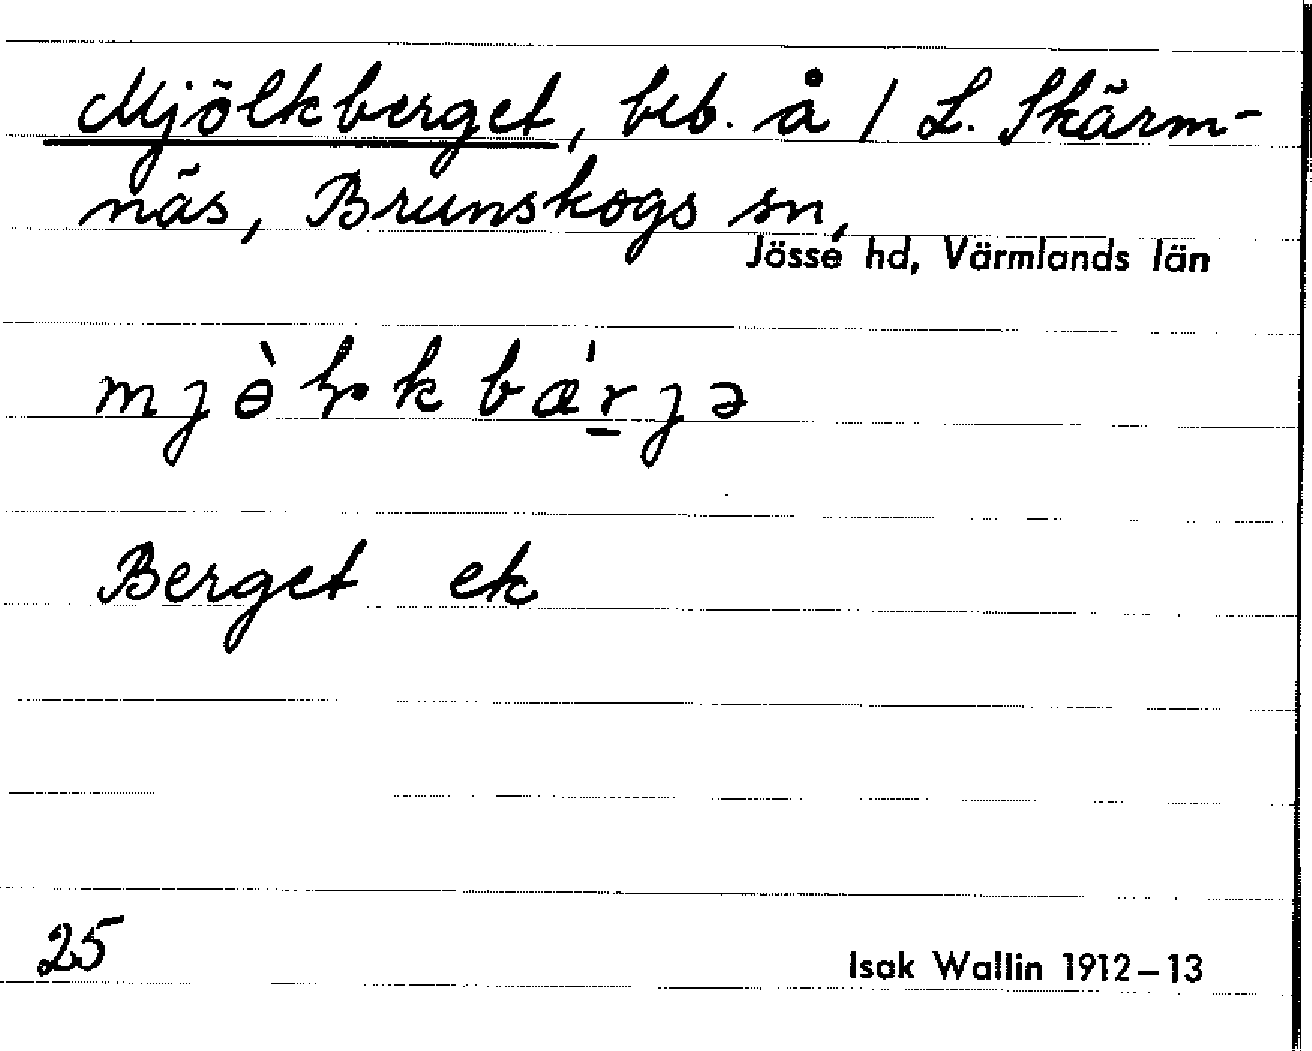 Mjölkberget, beb. å / L. Skärm-
näs, Brunskogs sn,
Jösse hd, Värmlands län
mjɵ̀ɽkbæ´rjə
Berget ek
25
Isak Wallin 1912–13